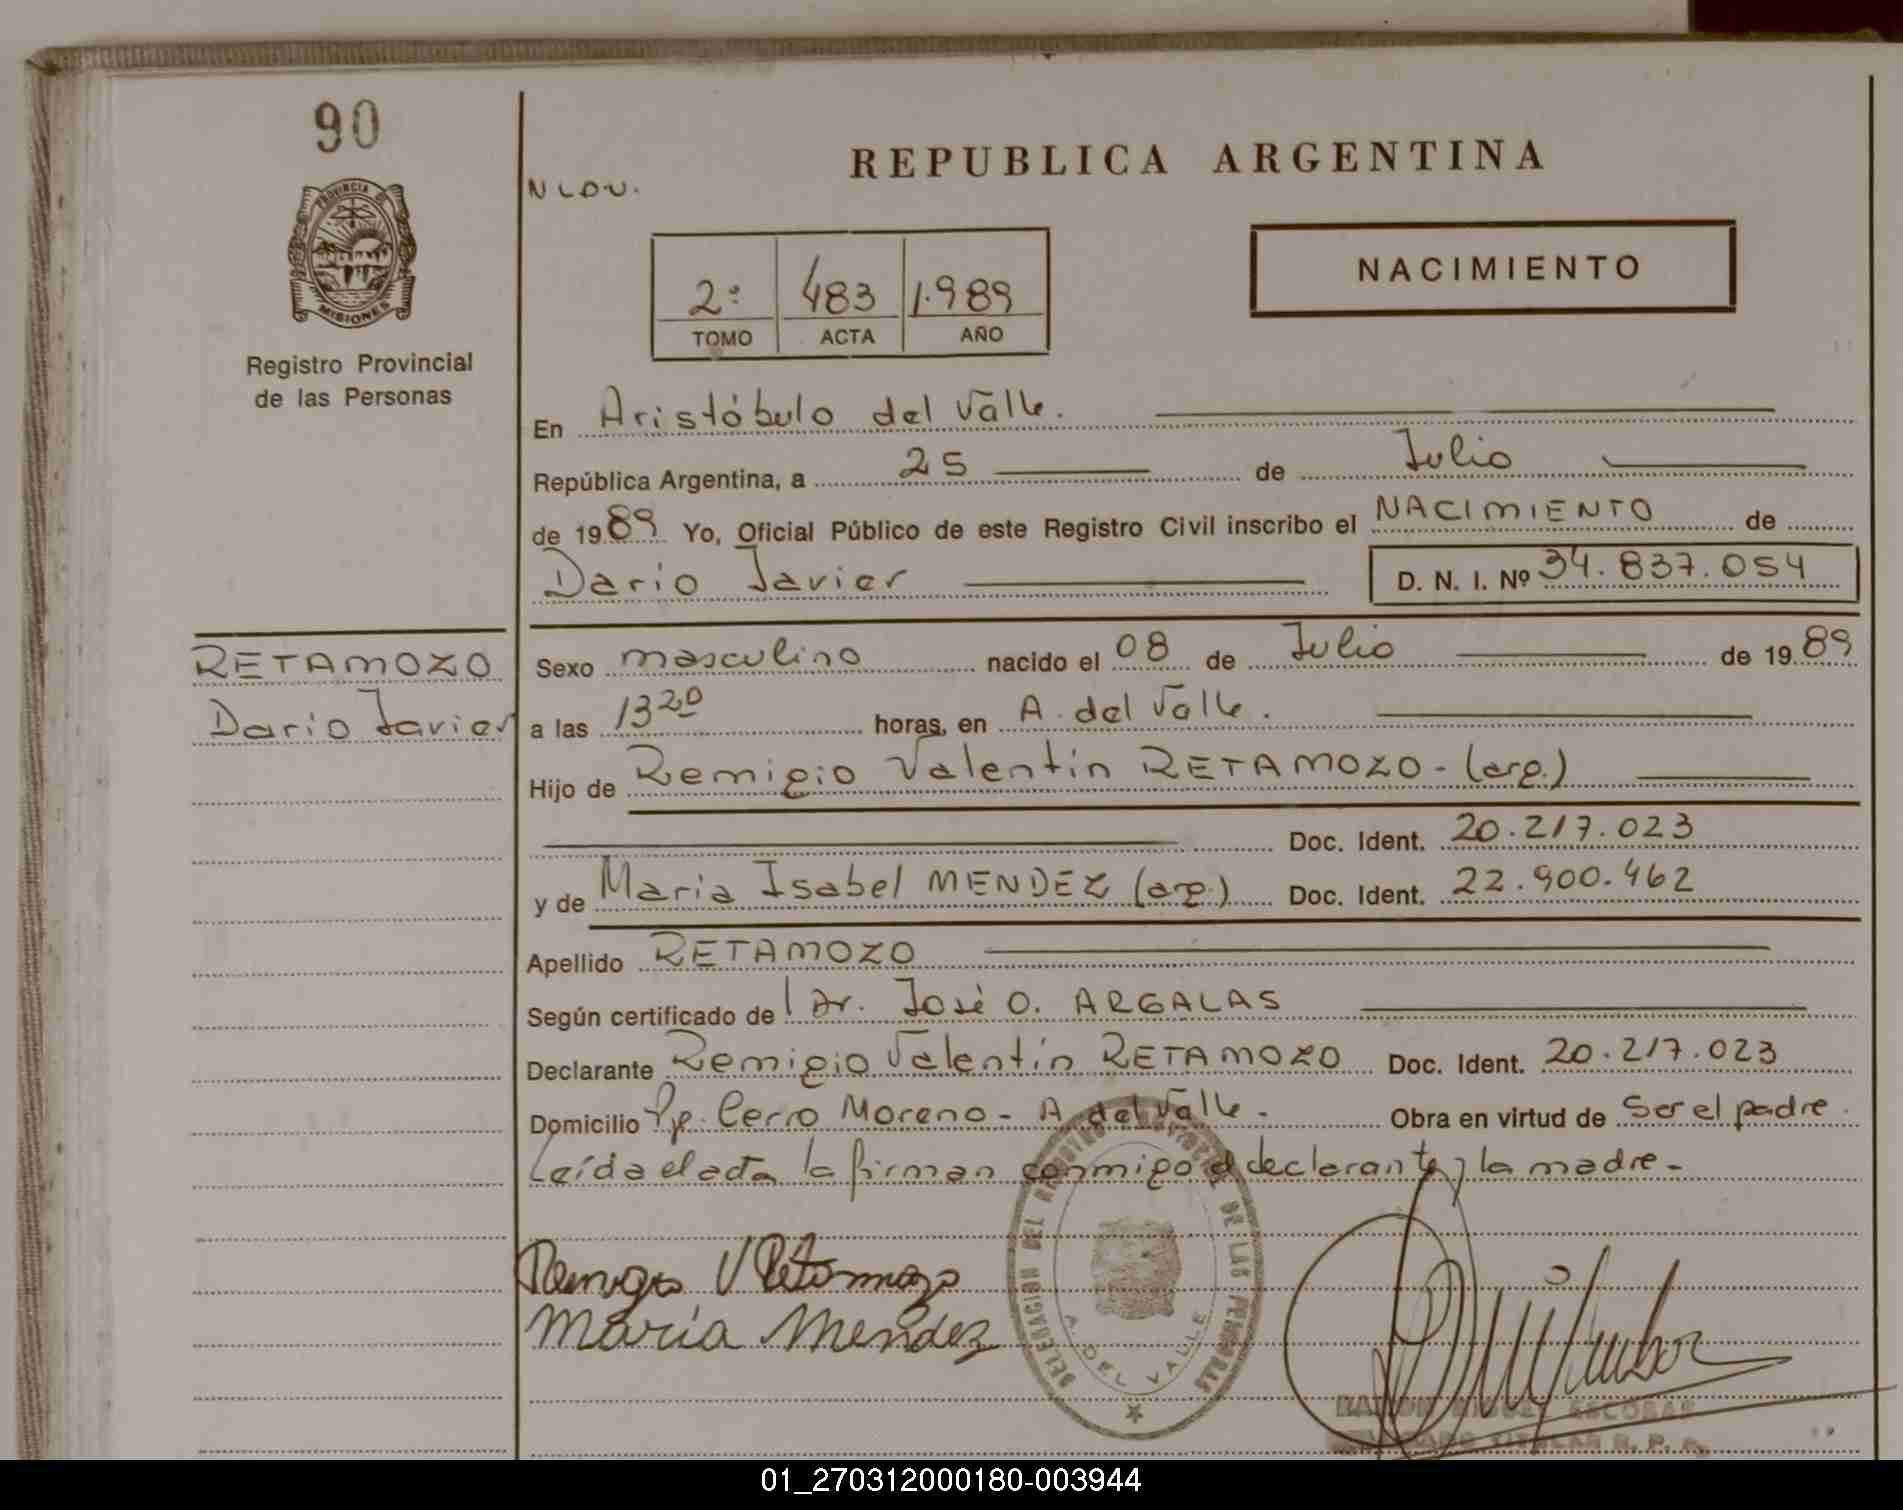 90
PROVINCIA DE
MISIONES
Registro Provincial
de las Personas
RETAMOZO
Dario Javier
REPUBLICA ARGENTINA
NACIMIENTO
2º 483 1.989
TOMO ACTA AÑO
En Aristóbulo del Valle.
República Argentina, a 25 de Julio
de 1989 Yo, Oficial Público de este Registro Civil inscribo el NACIMIENTO de
Dario Javier D. N. I. Nº 34.837.054
Sexo masculino nacido el 08 de Julio de 1989
a las 13 20 horas, en A. del Valle.
Hijo de Remigio Valentín RETAMOZO - (arg.)
Doc. Ident. 20.217.023
y de Maria Isabel MENDEZ (arg.) Doc. Ident. 22.900.462
Apellido RETAMOZO
Según certificado de Dr. José O. ARGALAS
Declarante Remigio Valentín RETAMOZO Doc. Ident. 20.217.023
Domicilio Pje. Cerro Moreno - A. del Valle - Obra en virtud de Ser el padre.
Leída el acta la firman conmigo el declarante y la madre -
Remigio V Retamozo
María Mendez
DELEGACION DEL REGISTRO PROVINCIAL DE LAS PERSONAS
A. DEL VALLE
RAMON MIGUEL ESCOBAR
TITULAR R. P. P.
01_270312000180-003944